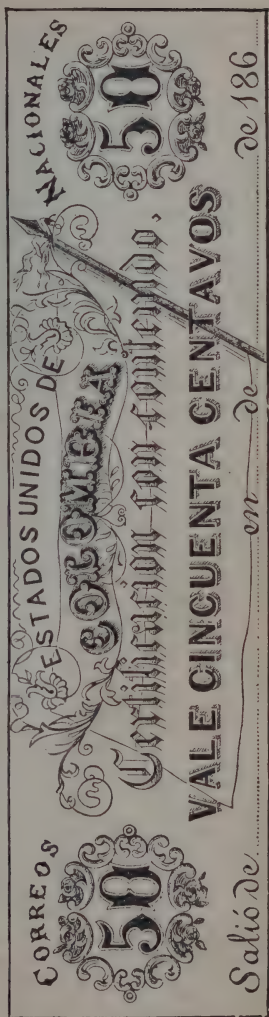 CORREOS NACIONALES
ESTADOS UNIDOS DE
COLOMBIA
50 50
Certificacion con contenido.
VALE CINCUENTA CENTAVOS
Salió de en de de 186